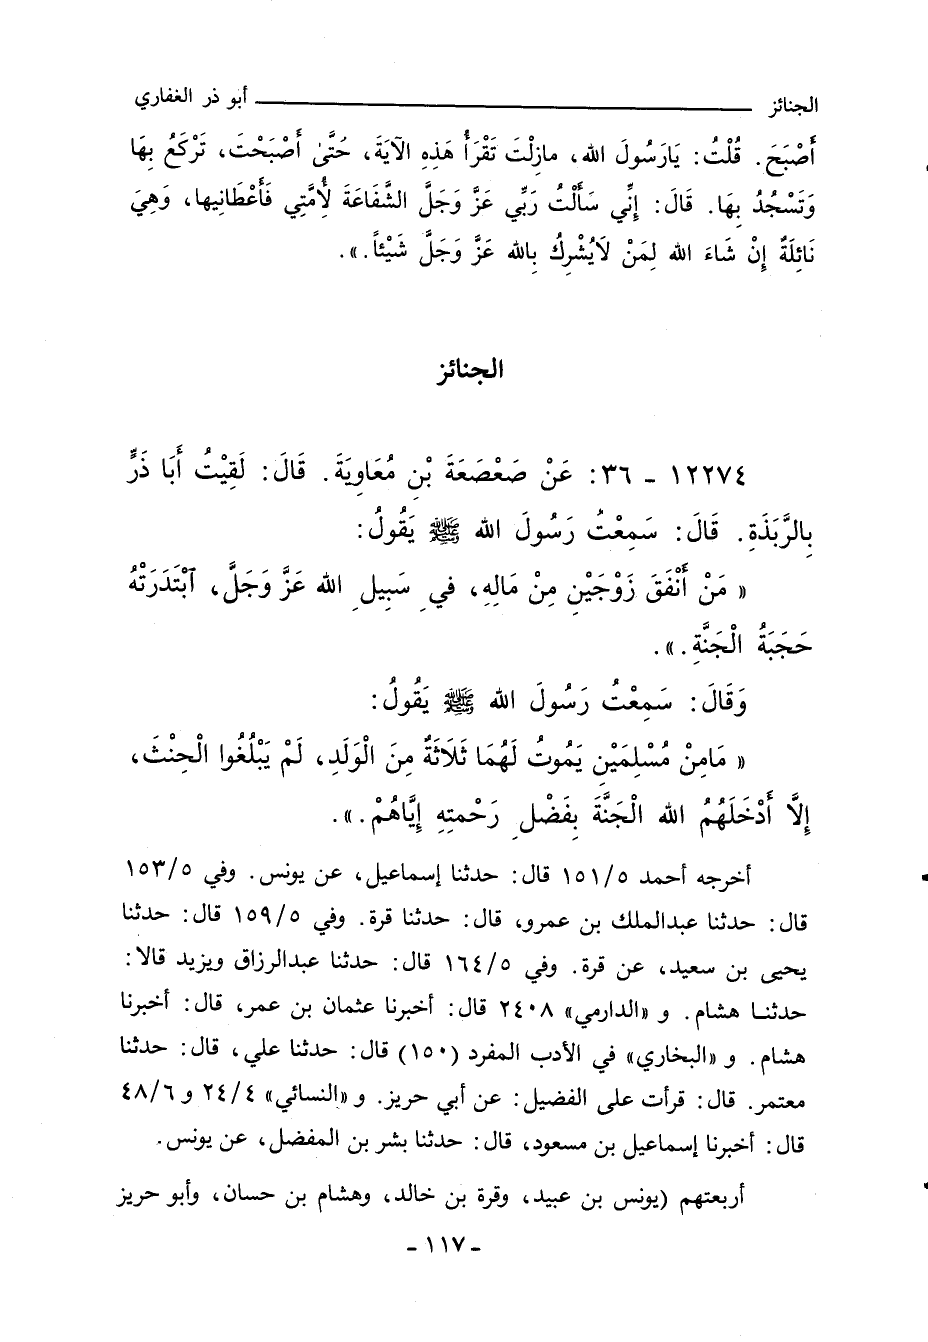 الجنائز ــــــــــ أبو ذر الغفاري
أَصْبَحَ. قُلْتُ: يَارَسُولَ الله، مازِلْتَ تَقْرَأُ هَذِهِ الآيَةَ، حَتَّى أَصْبَحْتَ، تَرْكَعُ بِهَا
وَتَسْجُدُ بِهَا. قَالَ: إِنِّي سَأَلْتُ رَبِّي عَزَّ وَجَلَّ الشَّفَاعَةَ لِأُمَّتِي فَأَعْطَانِيها، وَهِيَ
نَائِلَةٌ إِنْ شَاءَ الله لِمَنْ لَايُشْرِكُ بِالله عَزَّ وَجَلَّ شَيْئاً.».
الجنائز
١٢٢٧٤ - ٣٦: عَنْ صَعْصَعَةَ بْنِ مُعَاوِيَةَ. قَالَ: لَقِيْتُ أَبَا ذَرٍّ
بِالرَّبَذَةِ. قَالَ: سَمِعْتُ رَسُولَ الله ﷺ يَقُولُ:
« مَنْ أَنْفَقَ زَوْجَيْنِ مِنْ مَالِهِ، في سَبِيلِ الله عَزَّ وَجَلَّ، ٱبْتَدَرَتْهُ
حَجَبَةُ الْجَنَّةِ.».
وَقَالَ: سَمِعْتُ رَسُولَ الله ﷺ يَقُولُ:
« مَامِنْ مُسْلِمَيْنِ يَمُوتُ لَهُمَا ثَلَاثَةٌ مِنَ الْوَلَدِ، لَمْ يَبْلُغُوا الْحِنْثَ،
إِلَّا أَدْخَلَهُمُ الله الْجَنَّةَ بِفَضْلِ رَحْمتِهِ إِيَّاهُمْ.».
أخرجه أحمد ١٥١/٥ قال: حدثنا إسماعيل، عن يونس. وفي ١٥٣/٥
قال: حدثنا عبدالملك بن عمرو، قال: حدثنا قرة. وفي ١٥٩/٥ قال: حدثنا
يحيى بن سعيد، عن قرة. وفي ١٦٤/٥ قال: حدثنا عبدالرزاق ويزيد قالا:
حدثنا هشام. و «الدارمي» ٢٤٠٨ قال: أخبرنا عثمان بن عمر، قال: أخبرنا
هشام. و «البخاري» في الأدب المفرد (١٥٠) قال: حدثنا علي، قال: حدثنا
معتمر. قال: قرأت على الفضيل: عن أبي حريز. و «النسائي» ٢٤/٤ و ٤٨/٦
قال: أخبرنا إسماعيل بن مسعود، قال: حدثنا بشر بن المفضل، عن يونس.
أربعتهم (يونس بن عبيد، وقرة بن خالد، وهشام بن حسان، وأبو حريز
- ١١٧ -